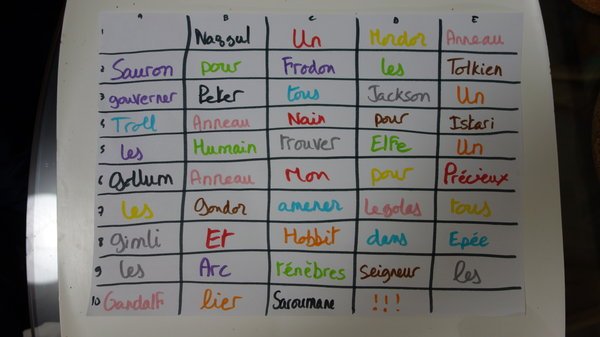 A B C D E
1 Nazgul Un Mordor Anneau
2 Sauron pour Frodon les Tolkien
3 gouverner Peter tous Jackson Un
4 Troll Anneau Nain pour Istari
5 les Humain trouver Elfe Un
6 Gollum Anneau Mon pour Précieux
7 les Gondor amener Legolas tous
8 Gimli Et Hobbit dans Epée
9 les Arc ténèbres Seigneur les
10 Gandalf lier Saroumane !!!